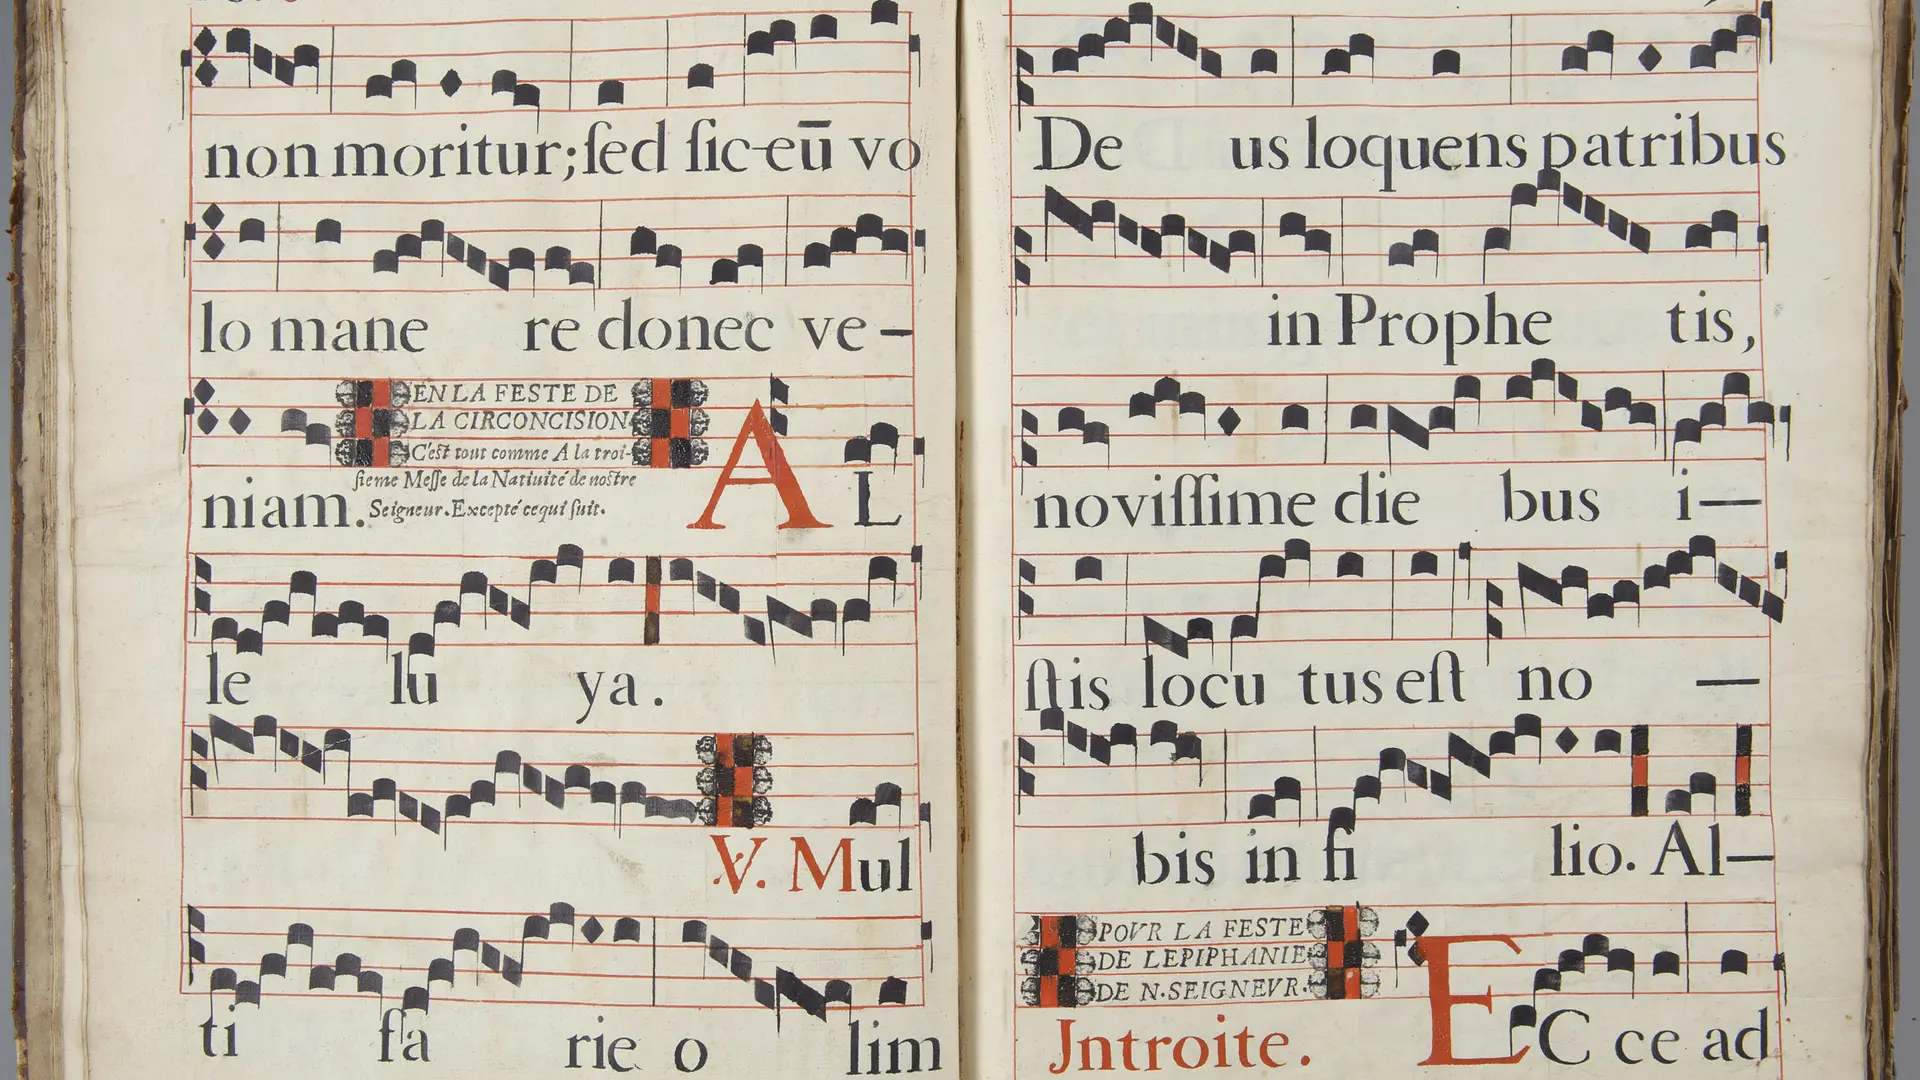 non moritur; ſed ſic eū vo
lo mane re donec ve-
EN LA FESTE DE
LA CIRCONCISION
C'eſt tout comme A la troi-
ſieme Meſſe de la Natiuité de noſtre
Seigneur. Excepté ce qui ſuit.
niam. AL
le lu ya.
℣. Mul
ti fa rie o lim
De us loquens patribus
in Prophe tis,
noviſſime die bus i-
ſtis locu tus eſt no -
bis in fi lio. Al-
POVR LA FESTE
DE LEPIPHANIE
DE N. SEIGNEVR.
Jntroite. EC ce ad